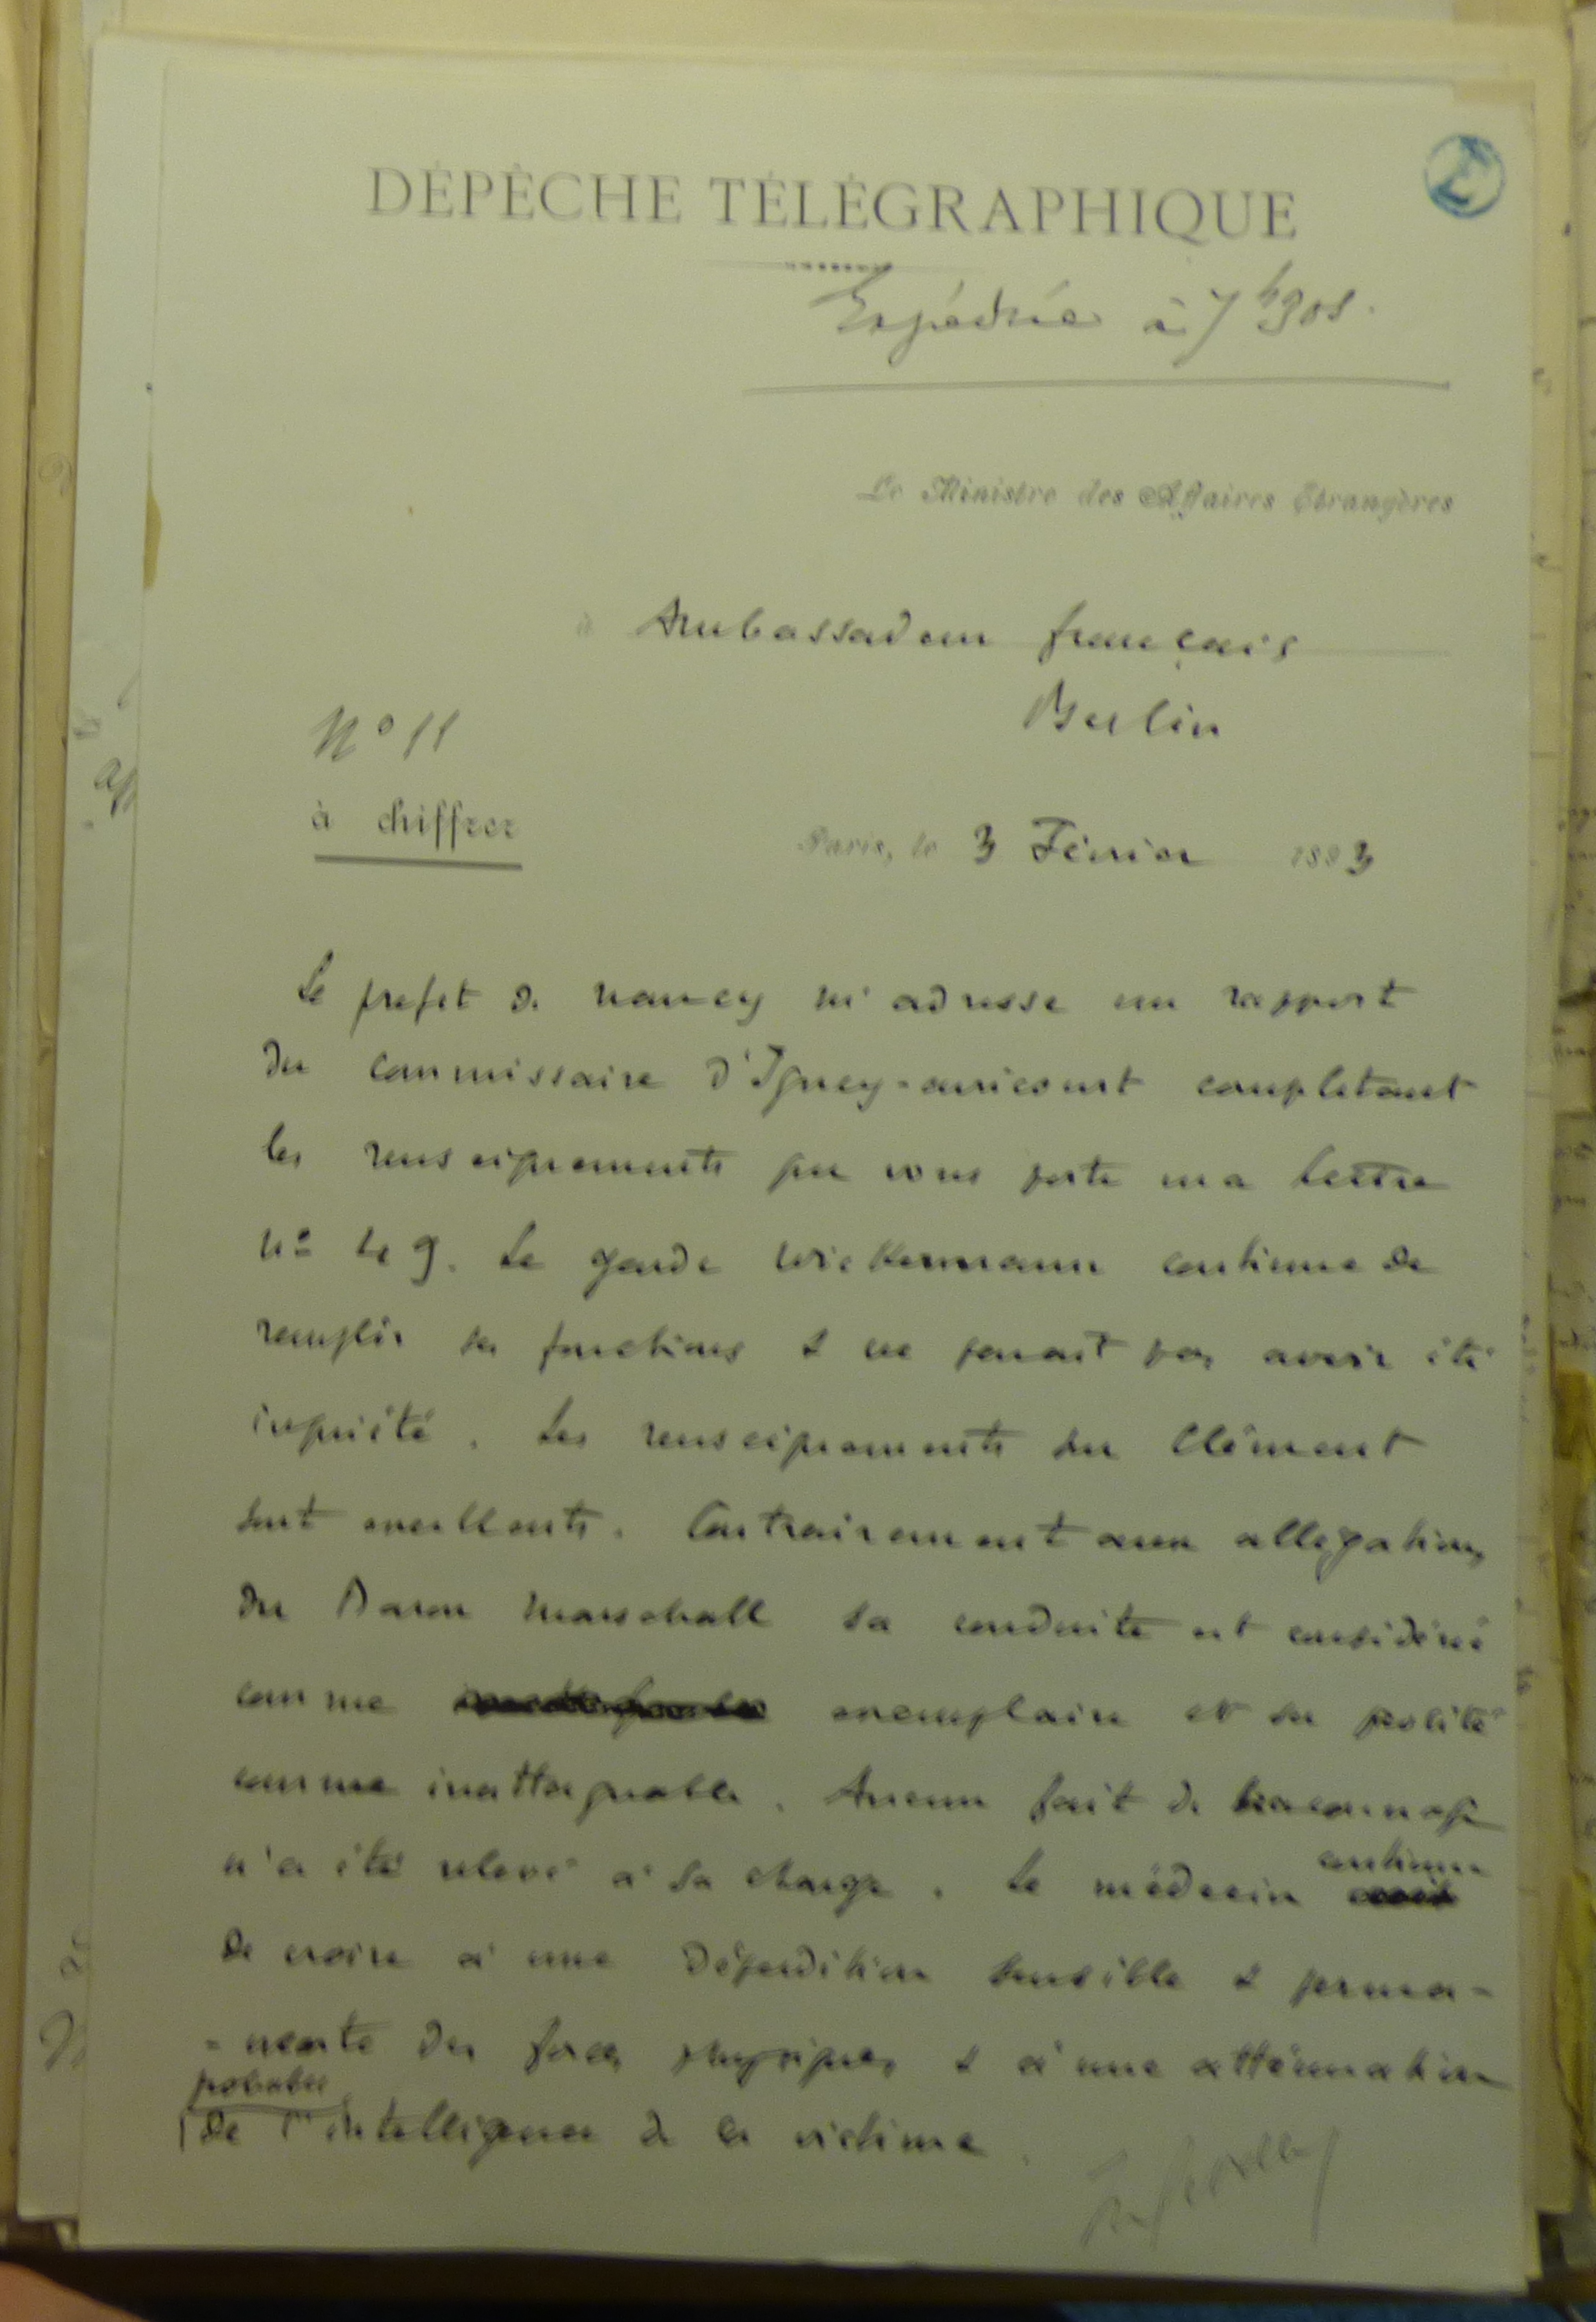 DÉPÊCHE TÉLÉGRAPHIQUE
Expédiée à 7h30s.
Le Ministre des Affaires Étrangères
à Ambassadeur français
Berlin
N° 11
à chiffrer
Paris, le 3 Février 1893
Le prefet de Nancy m'adresse un rapport
du commissaire d'Igney-Avricourt completant
les renseignements que vous porte ma lettre
n° 49. Le garde Wickermann continue de
remplir ses fonctions & ne parait pas avoir été
inquiété. Les renseignements sur Clément
sont excellents. Contrairement aux allegations
du Baron Marschall sa conduite est considéré
comme exemplaire et sa probité
comme inattaquable. Aucun fait de braconnage
n'a été relevé à sa charge. Le médecin continue
de croire à une déperdition sensible & perma-
-nente des forces physiques & à une atténuation
probable
de l'intelligence de la victime.